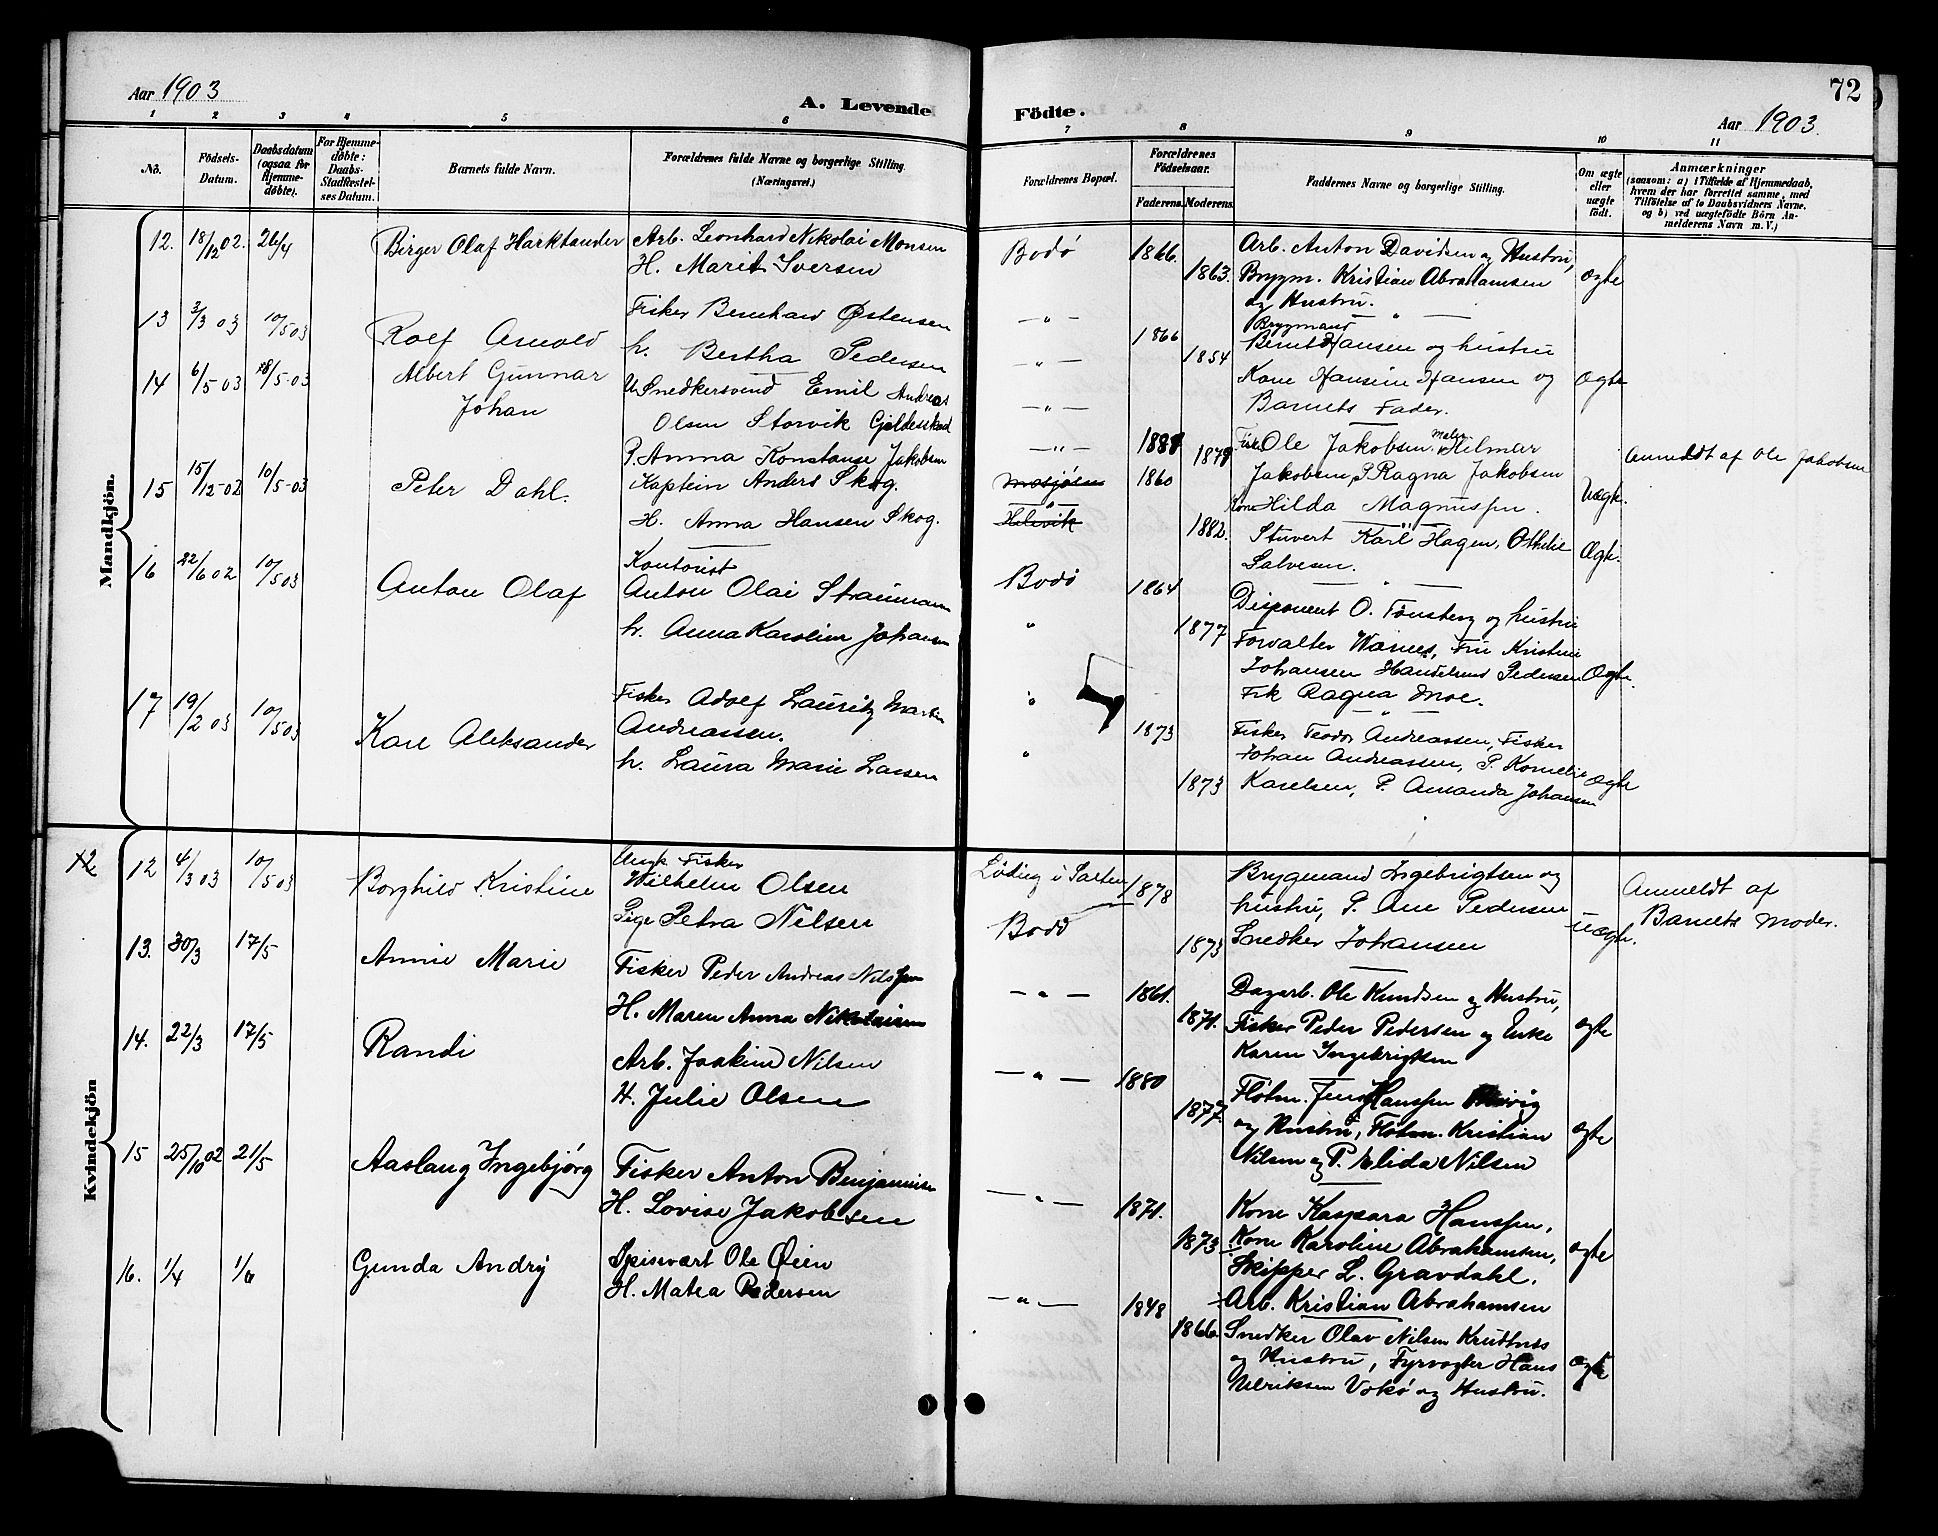 Aar 1903
A. Levende
1 2 3 4 5 6
No.
Födsels-Datum.
Daabsdatum (ogsaa for Hjemme-döbte).
For Hjemme-döbte: Daabs-Stadfæstel-ses Datum.
Barnets fulde Navn.
Forældrenes fulde Navne og borgerlige Stilling. (Næringsvei.)
Mandkjön.
12. 18/12 02. 26/4 Birger Olaf Harklander Arb. Leonhard Nikolai Monsen
H. Marit Iversen
13 3/3 03 10/5 03 Rolf Arnold Fisker Bernhard Østensen
h. Bertha Pedersen
14 6/5 03 18/5-03 Albert Gunnar U Snedkersvend Emil Andreas
Johan Olsen Storvik Gjeldeskad
P. Anna Konstanse Jakobsen
15 15/12-02 10/5-03 Peter Dahl. Kaptein Anders Skog.
H. Anna Hansen Skog.
16 22/6 02 10/5 03 Anton Olaf Kontorist
Anton Olai Straumann
h. Anna Karoline Johansen
17 19/2 03 10/5 03 Karl Aleksander Fisker Adolf Lauritz Martin
Andreassen.
h. Laura Marie Larsen
Kvindekjön
12 12 4/3 03 10/5 03 Borghild Kristine Ungk. Fisker
Wilhelm Olsen
Pige Petra Nilsen
13. 30/3 17/5 Annie Marie Fisker Peder Andreas Nilssen
H. Maren Anna Nikolaisen
14. 22/3 17/5 Randi Arb. Joakim Nilsen
H. Julie Olsen
15 25/10 02 21/5 Aaslaug Ingebjørg Fisker Anton Benjaminsen
H. Lovise Jakobsen
16. 1/4 1/6 Gunda Andry Spisevært Ole Øien
H. Matea Pedersen
72
Födte.
Aar 1903.
7 8 9 10 11
Forældrenes Bopæl.
Forældrenes Födselsaar.
Faderens. Moderens.
Faddernes Navne og borgerlige Stilling.
Om ægte eller uægte födt.
Anmærkninger
(saasom: a) i Tilfælde af Hjemmedaab,
hvem der har forrettet samme, med
Tilföielse af to Daabsvidners Navne.
og b) ved uægtefödte Börn An-
melderens Navn m. V.)
Bodø 1866. Arb. Anton Davidsen og Hustru,
1863. Brygm. Kristian Abrahamsen ægte
og Hustru.
— " — 1866 Brygmand
1854 Bernt Hansen og hustru
— " — Kone Hansine Hansen og Ægte
— " — Barnets Fader.
— " — 1881 1879 Fisk. Ole Jakobsen. Maler Hilmar Anmeldt af Ole Jakobsen
Mosjøen 1860 Jakobsen, P. Ragna Jakobsen Uægte.
Helsvik Kone Hilda Magnussen.
1882. Stuvert Karl Hagen, Othelie Ægte.
Salvesen.
Bodø 1864 Disponent O. Tønsberg og hustru
" 1877 Forvalter Warnes, Fru Kristine
Johansen Handelsmd Pedersen Ægte.
" Frk Ragna Moe.
1873 Fisker Teodor Andreassen, Fisker
" Johan Andreassen, P. Kornelie Ægte
1873 Karelsen, P. Amanda Johansen
Løding i Salten 1878 Brygmand Ingebrigtsen og Anmeldt af
Bodø hustru, P. Ane Pedersen uægte. Barnets Moder.
1873 Snedker Johansen
— " — 1861. Dagarb. Ole Knudsen og Hustru,
1871. Fisker Peder Pedersen og Enke ægte
Karen Ingebrigtsen
— " — 1880 Fløtm. Jens Hanssen
1877. og Hustru, Fløtm. Kristian ægte
Nilsen og P. Elida Nilsen
— " — 1871. Kone Kaspara Hanssen,
1873 Kone Karoline Abrahamsen, ægte
Skipper L. Gravdahl.
— " — 1848 Arb. Kristian Abrahamsen
1866. Snedker Olav Nilsen Krudtnes
og Hustru, Fyrvogter Hans ægte
Ulriksen Vokø og Hustru.